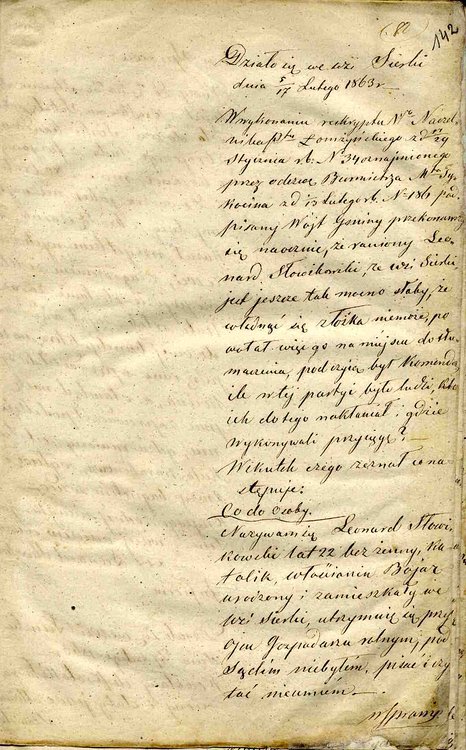 142
Działo się we wsi Sierki
dnia 5/17 Lutego 1863 r
Wwykonaniu reskryptu Naczel
nika Łomżyńskiego z d 29
stycznia rb. N 34 oznajmionego
przez odezwę Burmistrza Mta Ty
kocina z d 13 Lutego rb. No 186 pod
pisany Wójt Gminy przekonawszy
się naocznie, że raniony Leo
nard Słowikowski, ze wsi Sierki
jest jeszcze tak mocno słaby, że
się złóżka niemoże, po
wołał więc go na miejscu do tłu
maczenia, pod czyją był Komendą
ile w tej partyi było ludzi, kto
ich do tego nakłaniał i gdzie
wykonywali przysięgę?
Wskutek czego zeznał co na
stępuje:
Co do Osoby.
Nazywam się Leonard Słowi
kowski lat 22 bezżenny, Ka
tolik, włościanin Bojar
urodzony i zamieszkały we
wsi Sierki, utrzymuję się przy
Ojcu Gospodarzu rolnym, pod
Sądem niebyłem, pisać i czy
tać nieumiem —